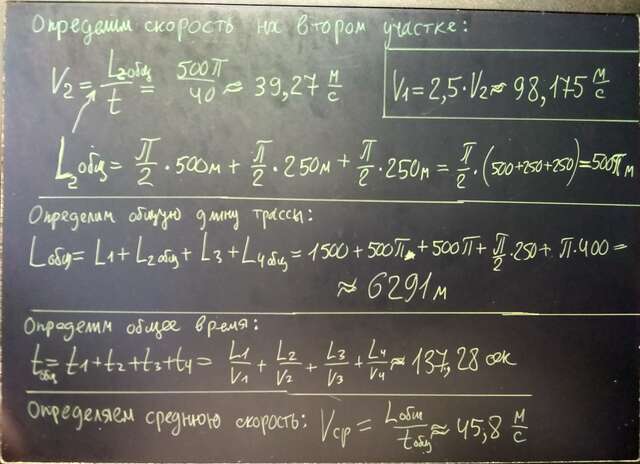 Определим скорость на втором участке:
V₂ = L₂общ/t = 500π/40 ≈ 39,27 м/с
V₁ = 2,5·V₂ ≈ 98,175 м/с
L₂общ = π/2·500м + π/2·250м + π/2·250м = π/2·(500+250+250) = 500π м
Определим общую длину трассы:
Lобщ = L₁ + L₂общ + L₃ + L₄общ = 1500 + 500π + 500π + π/2·250 + π·400 =
≈ 6291 м
Определим общее время:
tобщ = t₁ + t₂ + t₃ + t₄ = L₁/V₁ + L₂/V₂ + L₃/V₃ + L₄/V₄ ≈ 137,28 сек
Определяем среднюю скорость: Vср = Lобщ/tобщ ≈ 45,8 м/с